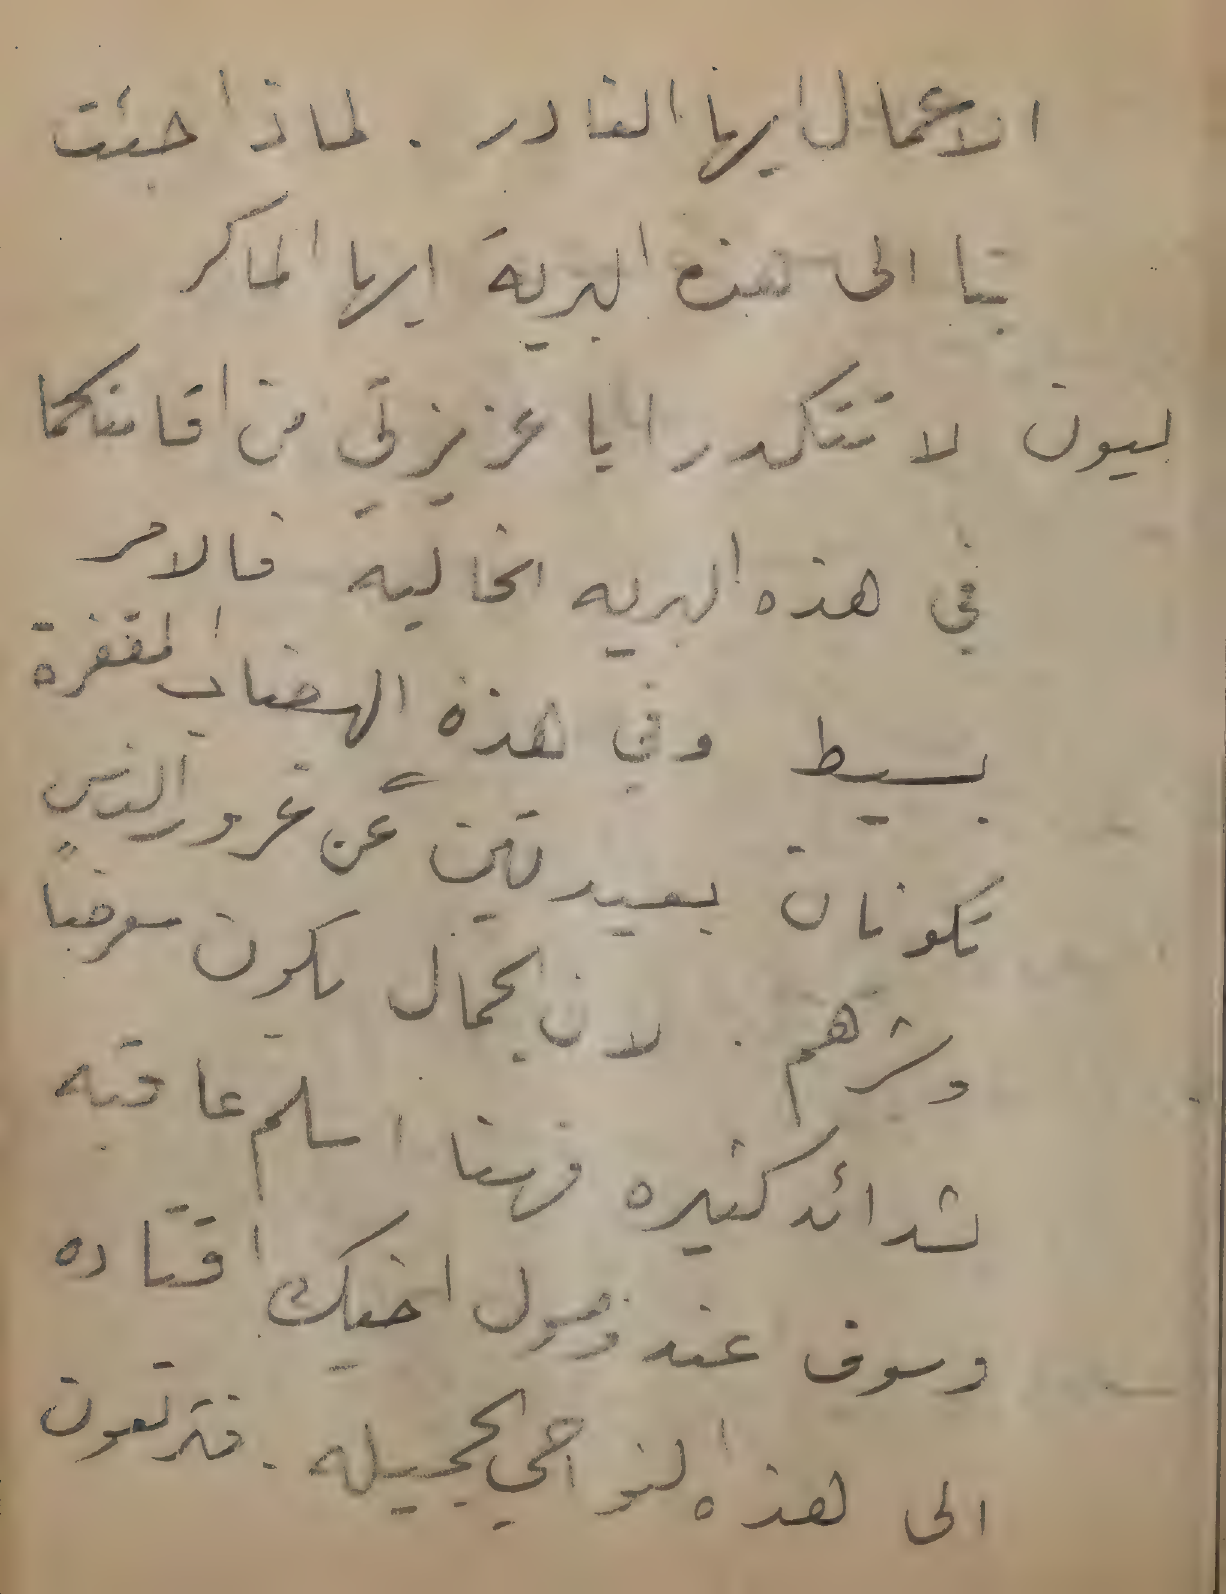 الاعمال ايها الغادر . لماذا جئت
بنا الى هذه البرية ايها الماكر
ليون لا تتكدرا يا عزيزتي من اقامتكما
في هذه البريه الخاليه فالامر
بسيط وفي هذه الهضاب المقفرة
تكونان بعيدتين عن غرور الناس
وشرهم . لان الجمال يكون معرضاً
لشدائد كثيره فهنا اسلم عاقبه
وسوف عند وصول اخيك اقتاده
الى هذه النواحي الجميله . فترتعون